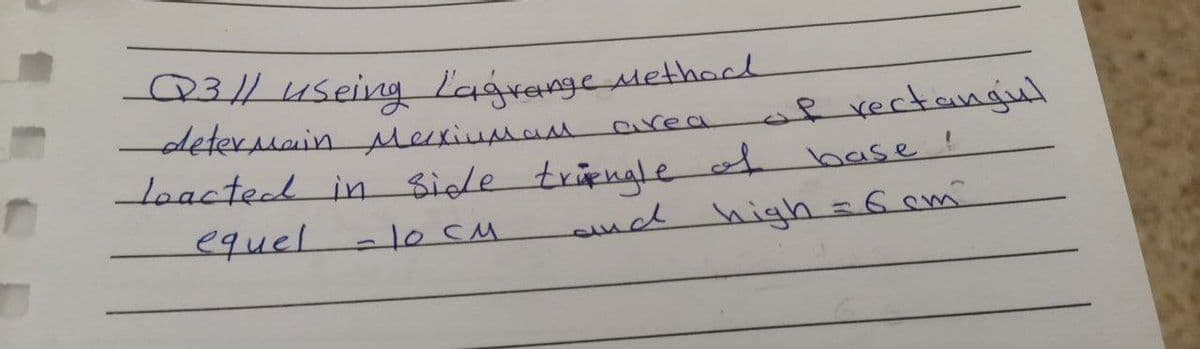 Q3// useing l'agrange Method
determain Maxiumam area of rectangul
loacted in side triengle of base !
equel = 10 CM and high = 6 cm